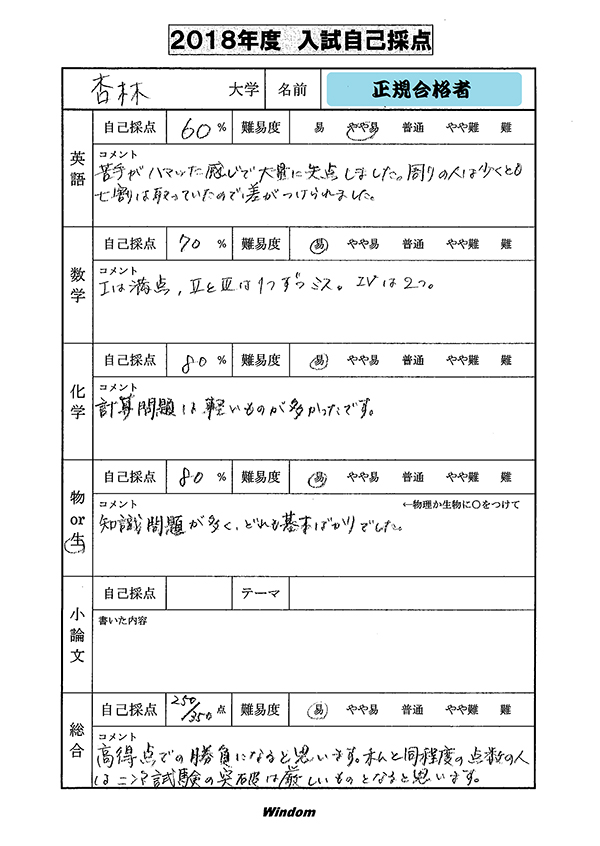 2018年度 入試自己採点
杏林 大学 名前 正規合格者
英語 自己採点 60 % 難易度 易 やや易 普通 やや難 難
コメント
苦手がハマッた感じで大量に失点しました。周りの人は少くとも
七割は取っていたので差がつけられました。
数学 自己採点 70 % 難易度 易 やや易 普通 やや難 難
コメント
Iは満点, IIとIIIは1つずつミス。IVは2つ。
化学 自己採点 80 % 難易度 易 やや易 普通 やや難 難
コメント
計算問題は軽いものが多かったです。
物or生 自己採点 80 % 難易度 易 やや易 普通 やや難 難
コメント ←物理か生物に○をつけて
知識問題が多く、どれも基本ばかりでした。
小論文 自己採点 テーマ
書いた内容
総合 自己採点 250/350 点 難易度 易 やや易 普通 やや難 難
コメント
高得点での勝負になると思います。私と同程度の点数の人
は一次試験の突破は厳しいものとなると思います。
Windom